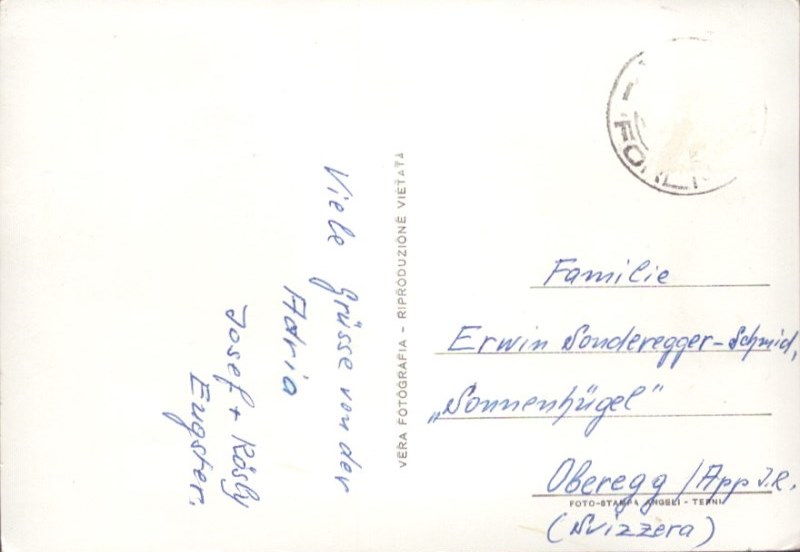 Viele Grüsse von der
Adria
Josef + Rösly
Eugster.
VERA FOTOGRAFIA - RIPRODUZIONE VIETATA
FORLI
Familie
Erwin Sonderegger-Schmid,
„Sonnenhügel"
Oberegg / App I.R.
FOTO-STAMPA ANGELI - TERNI
(Svizzera)